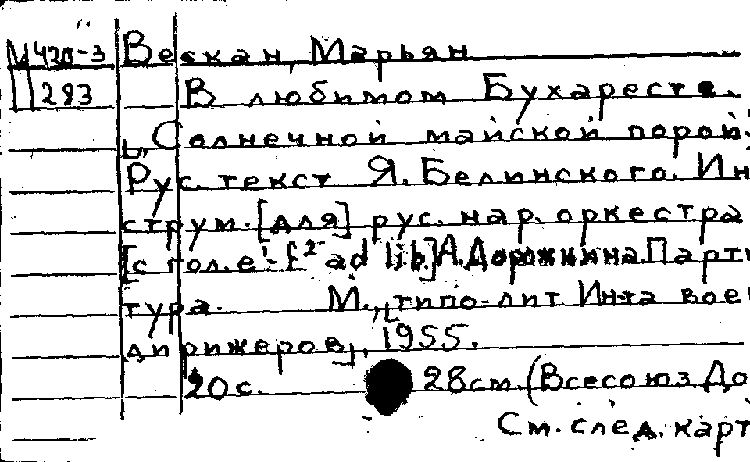 М 420-3 Векан, Марьян
П 283 В любимом Бухаресте.
[„Солнечной майской порой...
Рус. текст Я. Белинского. Ин-
струм. [для] рус. нар. оркестра
[с гол. e¹-f² ad lib.] А. Дорожкина. Парти-
тура. М., [типо-лит Ин-та вое
дирижеров], 1955.
20 с. 28 см (Всесоюз. До
См. след. карт